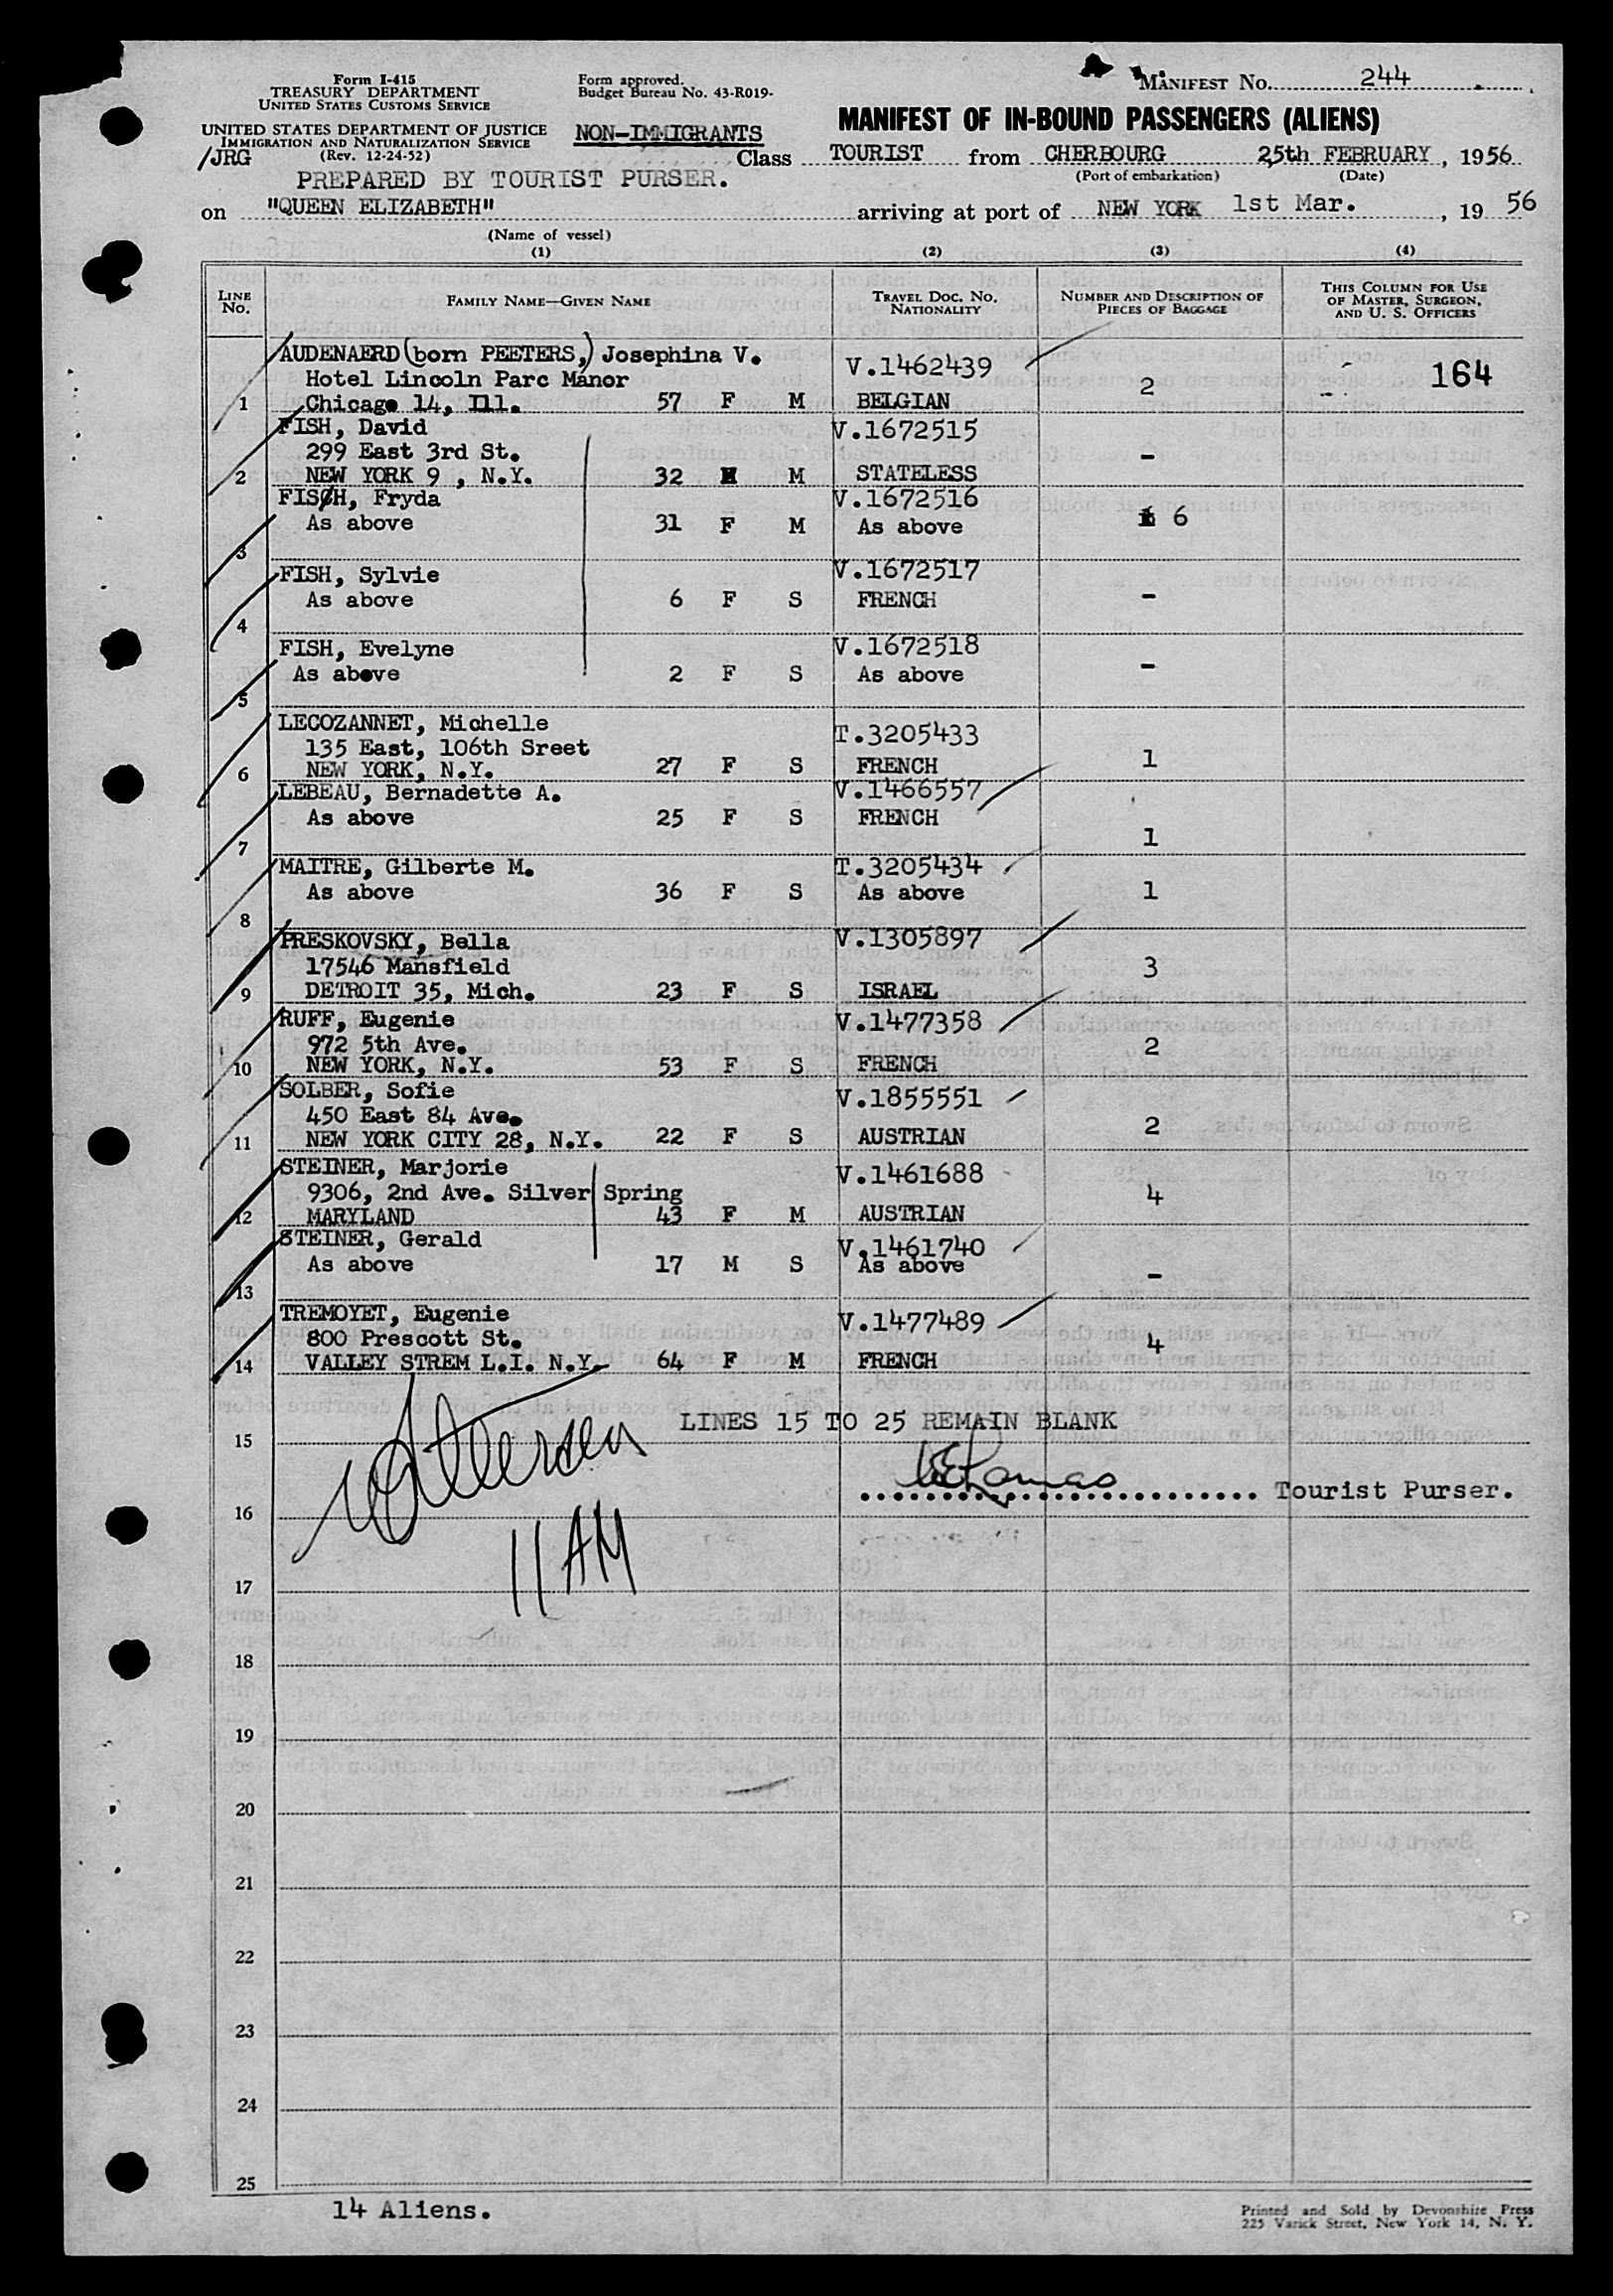 Form I-415
TREASURY DEPARTMENT
UNITED STATES CUSTOMS SERVICE
UNITED STATES DEPARTMENT OF JUSTICE
IMMIGRATION AND NATURALIZATION SERVICE
(Rev. 12-24-52)
/JRG
Form approved.
Budget Bureau No. 43-R019-
NON-IMMIGRANTS
MANIFEST No. 244
MANIFEST OF IN-BOUND PASSENGERS (ALIENS)
Class TOURIST from CHERBOURG 25th FEBRUARY, 1956
(Port of embarkation) (Date)
PREPARED BY TOURIST PURSER.
on "QUEEN ELIZABETH" arriving at port of NEW YORK 1st Mar., 19 56
(Name of vessel)
(1) (2) (3) (4)
LINE NO. FAMILY NAME—GIVEN NAME TRAVEL DOC. NO. NATIONALITY NUMBER AND DESCRIPTION OF PIECES OF BAGGAGE THIS COLUMN FOR USE OF MASTER, SURGEON, AND U. S. OFFICERS
AUDENAERD (born PEETERS,) Josephina V. V.1462439
Hotel Lincoln Parc Manor 2 164
1 Chicago 14, Ill. 57 F M BELGIAN
FISH, David V.1672515
299 East 3rd St. -
2 NEW YORK 9 , N.Y. 32 M M STATELESS
FISCH, Fryda V.1672516
As above 31 F M As above 6
3
FISH, Sylvie V.1672517
As above 6 F S FRENCH -
4
FISH, Evelyne V.1672518
As above 2 F S As above -
5
LECOZANNET, Michelle T.3205433
135 East, 106th Sreet
6 NEW YORK, N.Y. 27 F S FRENCH 1
LEBEAU, Bernadette A. V.1466557
As above 25 F S FRENCH
7 1
MAITRE, Gilberte M. T.3205434
As above 36 F S As above 1
8
PRESKOVSKY, Bella V.1305897
17546 Mansfield 3
9 DETROIT 35, Mich. 23 F S ISRAEL
RUFF, Eugenie V.1477358
972 5th Ave. 2
10 NEW YORK, N.Y. 53 F S FRENCH
SOLBER, Sofie V.1855551
450 East 84 Ave.
11 NEW YORK CITY 28, N.Y. 22 F S AUSTRIAN 2
STEINER, Marjorie V.1461688
9306, 2nd Ave. Silver Spring 4
12 MARYLAND 43 F M AUSTRIAN
STEINER, Gerald V.1461740
As above 17 M S As above -
13
TREMOYET, Eugenie V.1477489
800 Prescott St. 4
14 VALLEY STREM L.I. N.Y. 64 F M FRENCH
LINES 15 TO 25 REMAIN BLANK
15
Tourist Purser.
16
11 AM
17
18
19
20
21
22
23
24
25
14 Aliens.
Printed and Sold by Devonshire Press
225 Varick Street, New York 14, N. Y.